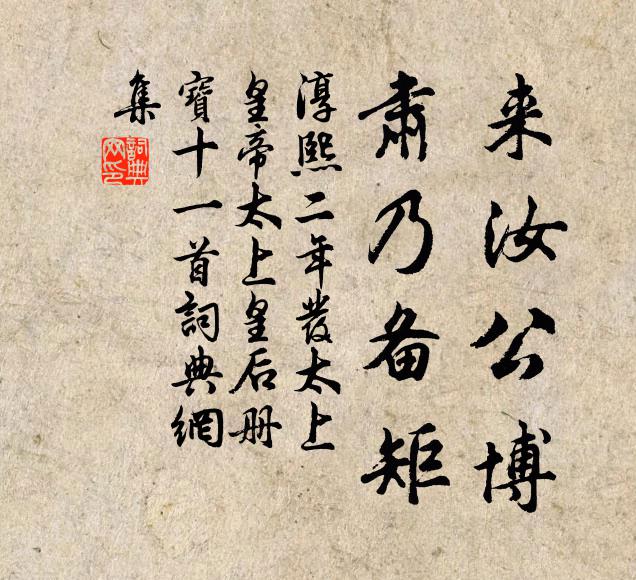 来汝公博
肅乃备矩
淳熙二年發太上
皇帝太上皇后册
寶十一首詞典網
集
詞典網印